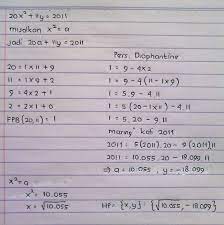 20x² + 11y = 2011
misalkan x² = a
jadi 20a + 11y = 2011
20 = 1 x 11 + 9
11 = 1 x 9 + 2
9 = 4 x 2 + 1
2 = 2 x 1 + 0
FPB (20, 11) = 1
Pers. Diophantine
1 = 9 - 4 x 2
1 = 9 - 4 (11 - 1 x 9)
1 = 5.9 - 4.11
1 = 5 (20 - 1x11) - 4.11
1 = 5.20 - 9.11
masing² kali 2011
2011 = 5(2011).20 - 9(2011)11
2011 = 10.055.20 - 18.099.11
⇒ a = 10.055, y = -18.099
x² = a
x² = 10.055
x = √10.055
HP = {x,y} = {√10.055, -18.099}